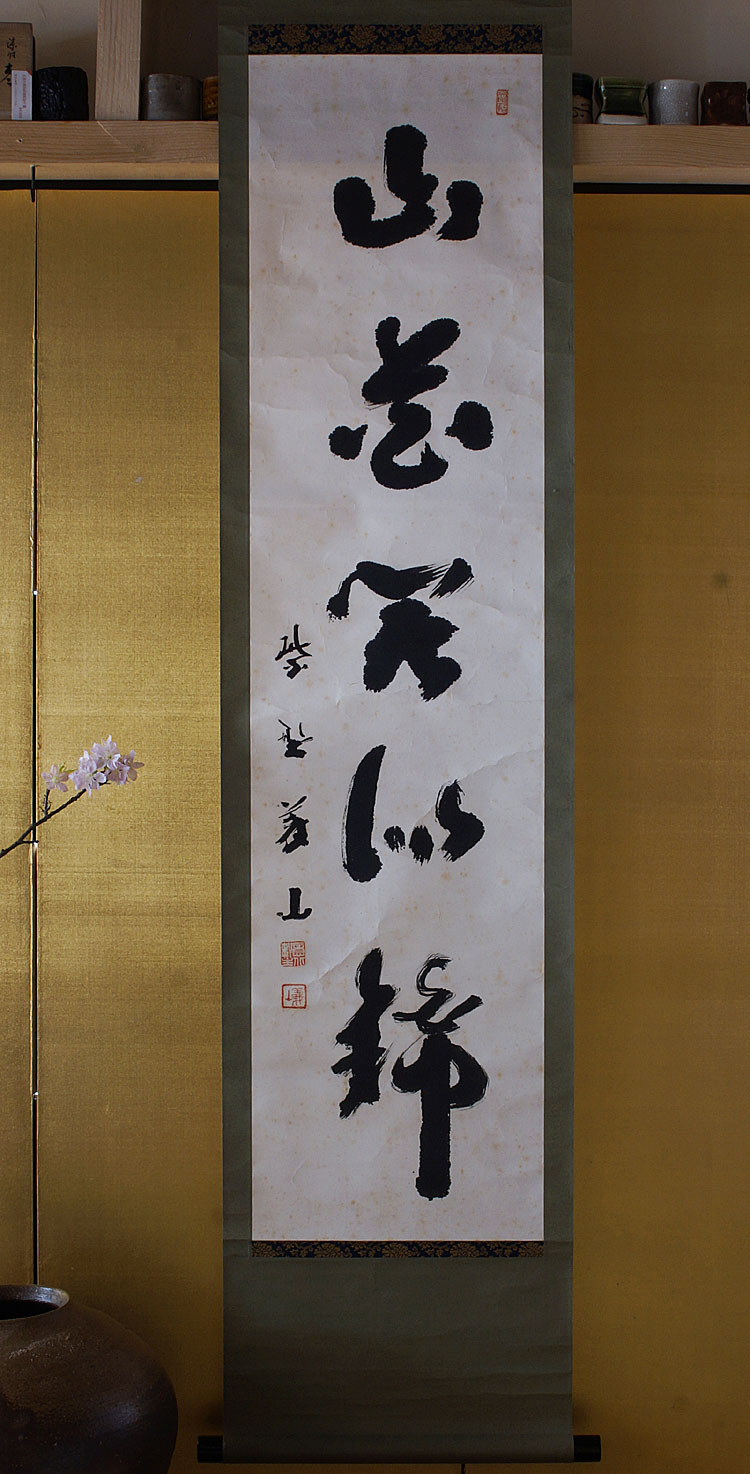 山花開似錦
紫野義山